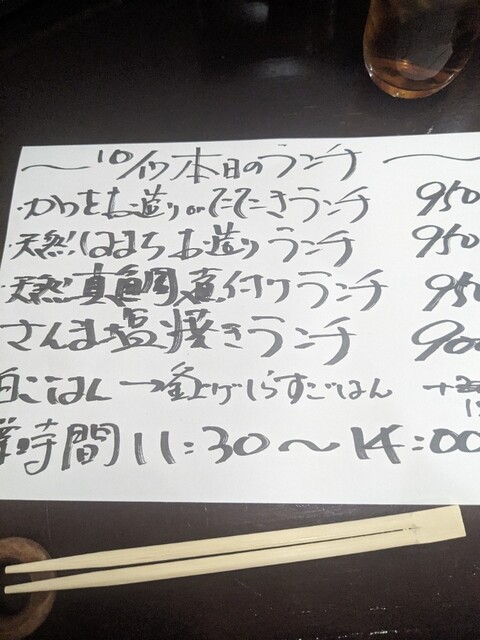 〜 10/17 本日のランチ 〜
・かつをお造りorたたきランチ 950
・天然はまちお造りランチ 950
・天然真鯛煮付けランチ 950
さんま塩焼きランチ 900
白ごはん→釜上げしらすごはん +
業時間 11:30〜14:00